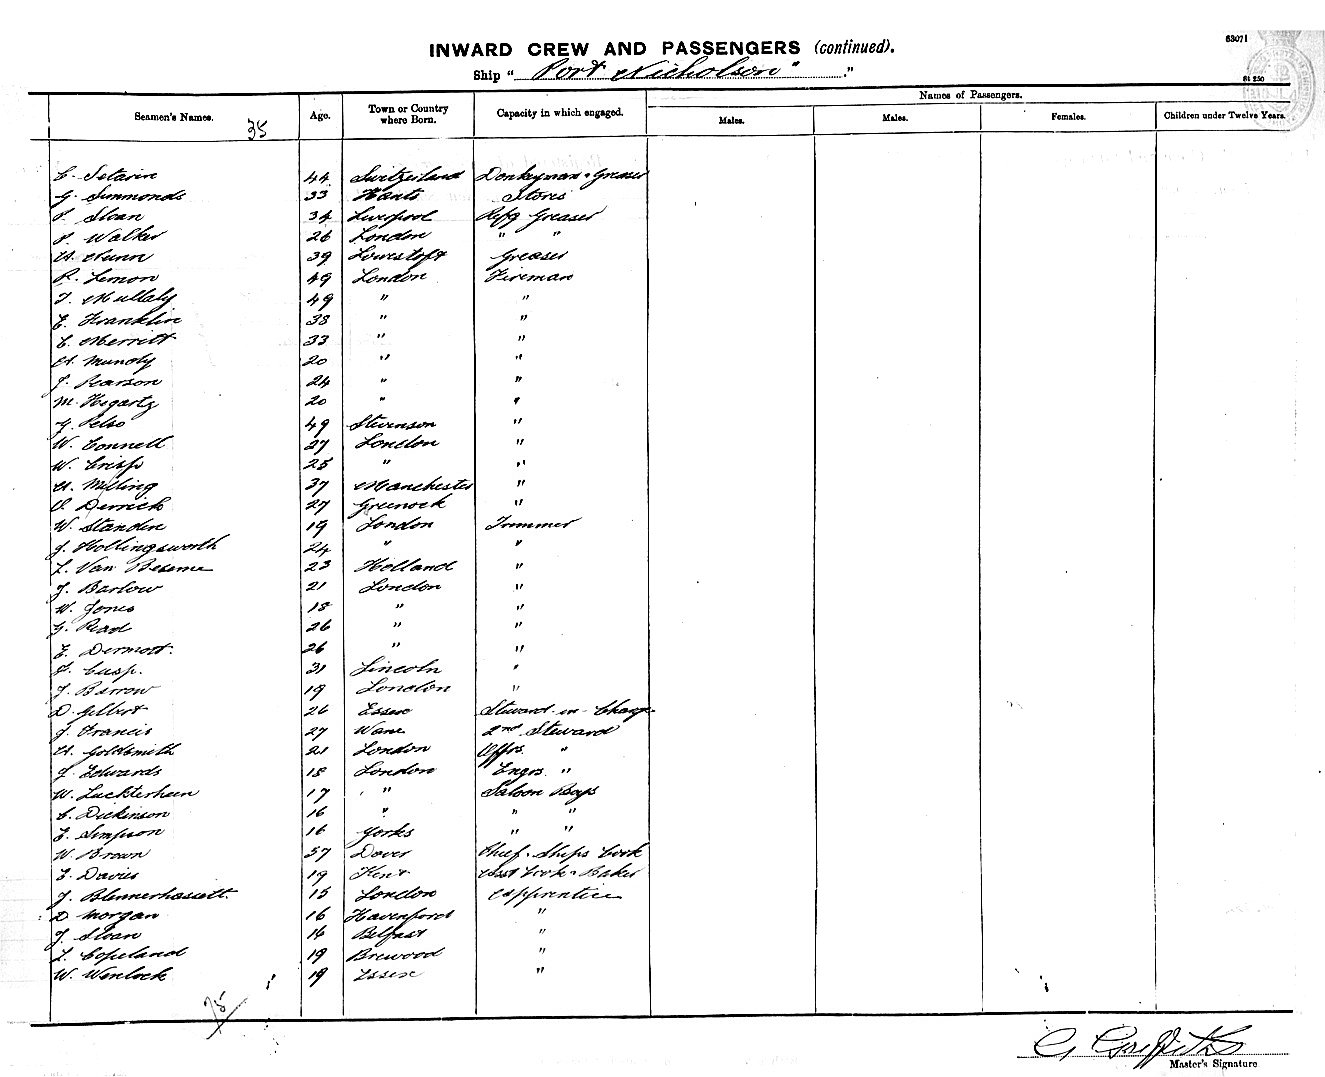 63071
INWARD CREW AND PASSENGERS (continued).
Ship " Port Nicholson "
81 250
Seamen's Names. 35 Age. Town or Country where Born. Capacity in which engaged. Names of Passengers.
Males. Males. Females. Children under Twelve Years.
C. 44 Switzerland Donkeyman & Greaser
G. Simmonds 33 Hants Stores
P. Sloan 34 Liverpool Refg Greaser
P. Walker 26 London " "
H. Nunn 39 Lowestoft Greaser
R. Lemon 49 London Fireman
T. Mullaly 49 " "
E. Franklin 38 " "
C. Merritt 33 " "
A. Mundy 20 " "
J. Pearson 24 " "
M. Hegarty 20 " "
G. Kelso 49 Stevenson "
W. Connell 27 London "
W. Crisp 25 " "
H. Milling 37 Manchester "
O. Derrick 27 Greenock "
W. Standen 19 London Trimmer
J. Hollingsworth 24 " "
L. Van 23 Holland "
J. Barlow 21 London "
W. Jones 18 " "
G. Read 26 " "
E. Dermott. 26 " "
31 Lincoln "
J. Barrow 19 London "
D. Gilbert 26 Essex Steward-in-Charge
J. Francis 27 2nd Steward
H. Goldsmith 21 London Offrs. "
J. Edwards 18 London Engrs. "
W. 17 " Saloon Boys
C. Dickinson 16 " " "
E. Simpson 16 Yorks " "
W. Brown 57 Dover Chief Ships Cook
E. Davies 19 Kent Asst Cook & Baker
J. Blennerhassett. 15 London Apprentice
D Morgan 16 "
J. Sloan 16 Belfast "
L. Copeland 19 Brewood "
W. Wenlock 19 Essex "
75
G Griffiths
Master's Signature